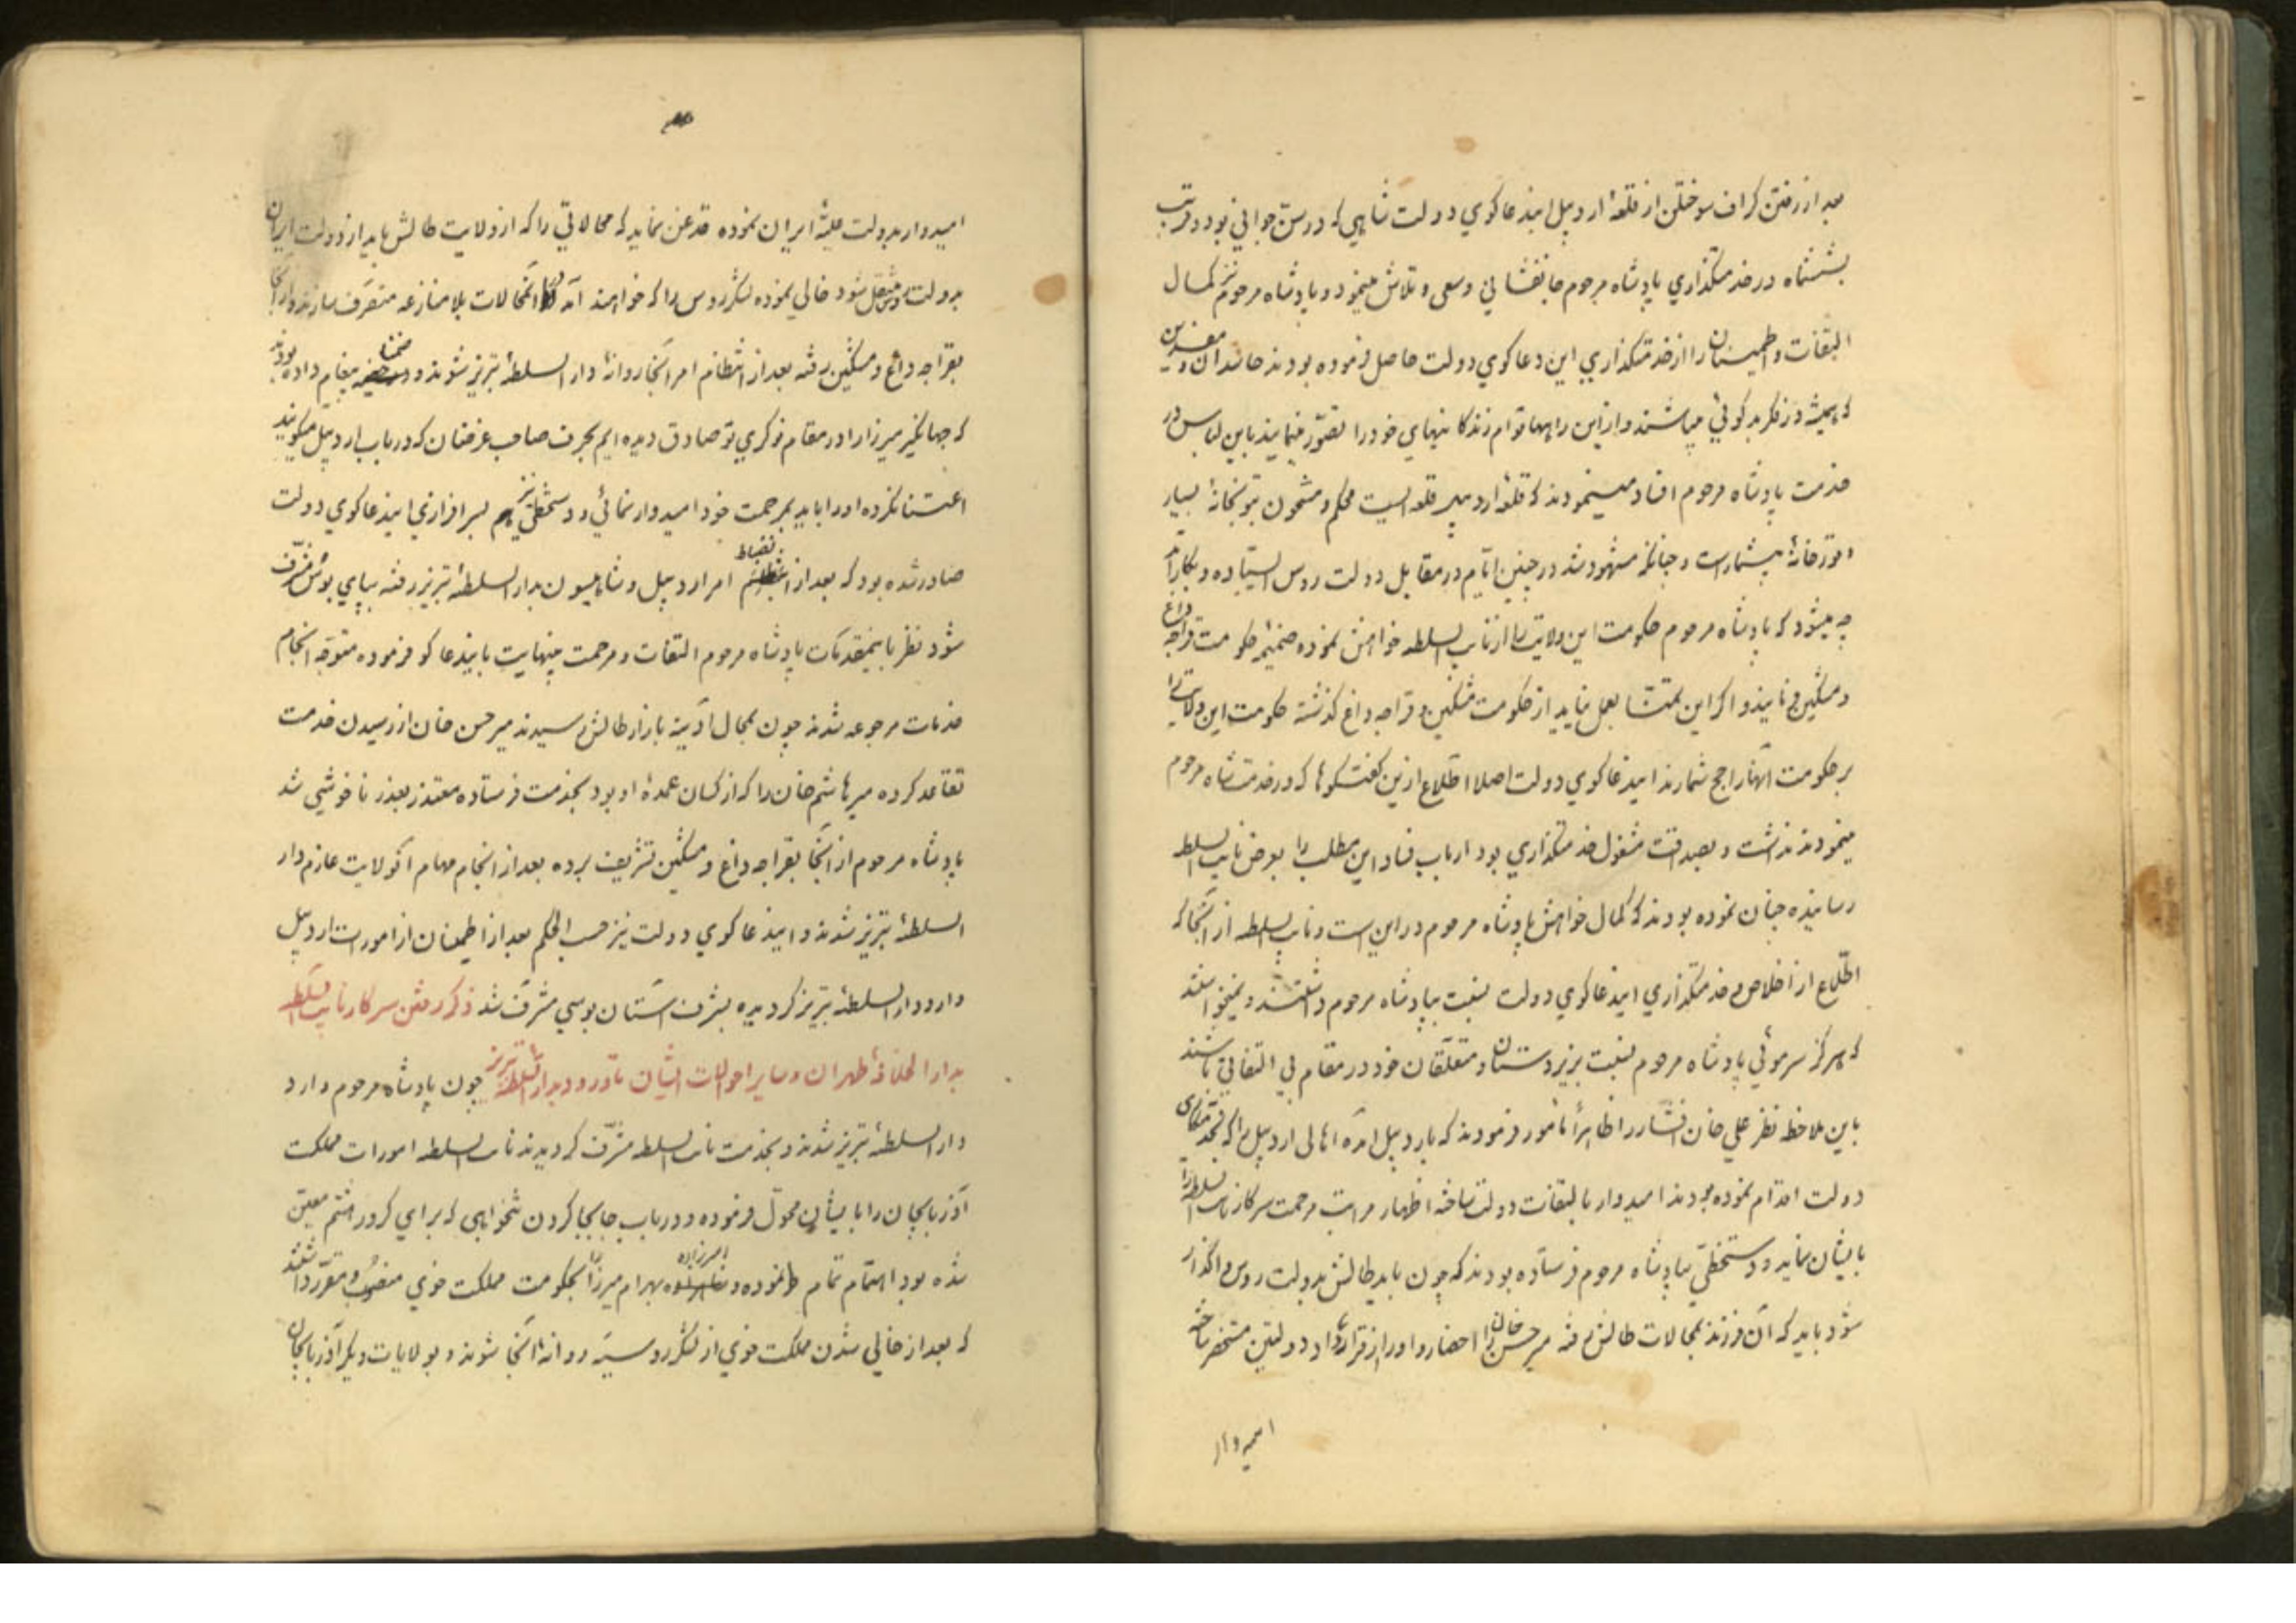 بعد از رفتن کراف سوختلن از قلعهٔ اردبیل ایندعاکوی دولت شاهی که در سن جوانی بود و قریب
بششماه در خدمتکذاری پادشاه مرحوم جانفشانی و سعی و تلاش مینمود و پادشاه مرحوم نیز کمال
التفات و اطمینان را از خدمتکذاری این دعاکوی دولت حاصل فرموده بودند حاسدان و مغرضین
که همیشه در فکر بدکوئی میباشند و از این راهها قوام زندکانیهای خود را تصوّر مینمایند باین لباس در
خدمت پادشاه مرحوم افساد مینمودند که قلعهٔ اردبیل قلعه ایست محکم و مشحون بتوپخانهٔ بسیار
و قورخانهٔ بیشمار است و چنانکه مشهود شد در چنین ایّام در مقابل دولت روس ایستاده و بکار آمد
چه میشود که پادشاه مرحوم حکومت این ولایت را از نایب السلطه خواهش نموده ضمیمهٔ حکومت قراجه داغ
و مشکین فرمایند و اکر این تمنّا بعمل نیاید از حکومت مشکین و قراجه داغ کذشته حکومت این ولایت را
بر حکومت آنها راجح شمارند ایندعاکوی دولت اصلا اطّلاع ازین کفتکوها که در خدمت شاه مرحوم
مینمودند نداشت و بصداقت مشغول خدمتکذاری بود ارباب فساد این مطلب را بعرض نایب السلطه
رسانیده چنان نموده بودند که کمال خواهش پادشاه مرحوم در این است و نایب السلطه از آنجا که
اطّلاع از اخلاص و خدمتکذاری ایندعاکوی دولت نسبت بپادشاه مرحوم داشتند و نمیخواستند
که هرکز سرموئی پادشاه مرحوم نسبت بزیردستان و متعلّقان خود در مقام بی التفاتی باشند
باین ملاحظه نظر علی خان افشار را ظاهراً مامور فرمودند که باردبیل آمده اهالی اردبیل را که بخدمتکذاری
دولت اقدام نموده بودند امیدوار بالتفات دولت ساخته اظهار مراتب مرحمت سرکار نایب السلطه را
بایشان نماید و دستخطّی بپادشاه مرحوم فرستاده بودند که چون باید طالش بدولت روس واکذار
شود باید که آن فرزند بمحالات طالش رفته میر حسن خان را احضار و او را از قرارداد دولتین مستحضر ساخته
امیدوار
امیدوار بدولت علیّهٔ ایران نموده قدغن نماید که محالاتی را که از ولایت طالش باید از دولت ایران
بدولت روس منتقل شود خالی نموده لشکر روس را که خواهند آمد آنمحالات بلا منازعه متصرّف سازند و از آنجا
بقراجه داغ و مشکین رفته بعد از انتظام امر آنجا روانهٔ دار السلطنهٔ تبریز شوند و ضمناً پیغام داده بودند
که جهانکیر میرزا را در مقام نوکری تو صادق دیده ایم بحرف صاحب غرضان که در باب اردبیل میکویند
اعتنا نکرده او را باید بمرحمت خود امیدوار نمائی و دستخطّی نیز بسرافرازی ایندعاکوی دولت
صادر شده بود که بعد از انضباط امر اردبیل و شاهیسون بدار السلطنهٔ تبریز رفته بپای بوس مشرّف
شود نظر باینمقدّمات پادشاه مرحوم التفات و مرحمت بینهایت بایندعاکو فرموده متوجّه انجام
خدمات مرجوعه شدند چون بمحال آدینه بازار طالش رسیدند میر حسن خان از رسیدن خدمت
تقاعد کرده میر هاشم خان را که از کسان عمدهٔ او بود بخدمت فرستاده معتذر بعذر ناخوشی شد
پادشاه مرحوم از آنجا بقراجه داغ و مشکین تشریف برده بعد از انجام مهام آنولایت عازم دار
السلطنهٔ تبریز شدند و ایندعاکوی دولت نیز حسب الحکم بعد از اطمینان از امورات اردبیل
وارد دار السلطنهٔ تبریز کردیده بشرف آستان بوسی مشرّف شد ذکر رفتن سرکار نایب السلطه
بدار الخلافهٔ طهران و سایر احوالات ایشان تا ورود بدار السلطنهٔ تبریز چون پادشاه مرحوم وارد
دار السلطنهٔ تبریز شدند و بخدمت نایب السلطه مشرّف کردیدند نایب السلطه امورات مملکت
آذربایجان را بایشان محوّل فرموده و در باب جابجا کردن تنخواهی که برای کرور هشتم معیّن
شده بود اهتمام تمام نموده و امیرزاده بهرام میرزا را بحکومت مملکت خوی منصوب و مقرّر داشتند
که بعد از خالی شدن مملکت خوی از لشکر روسیّه روانهٔ آنجا شوند و بولایات دیکر آذربایجان